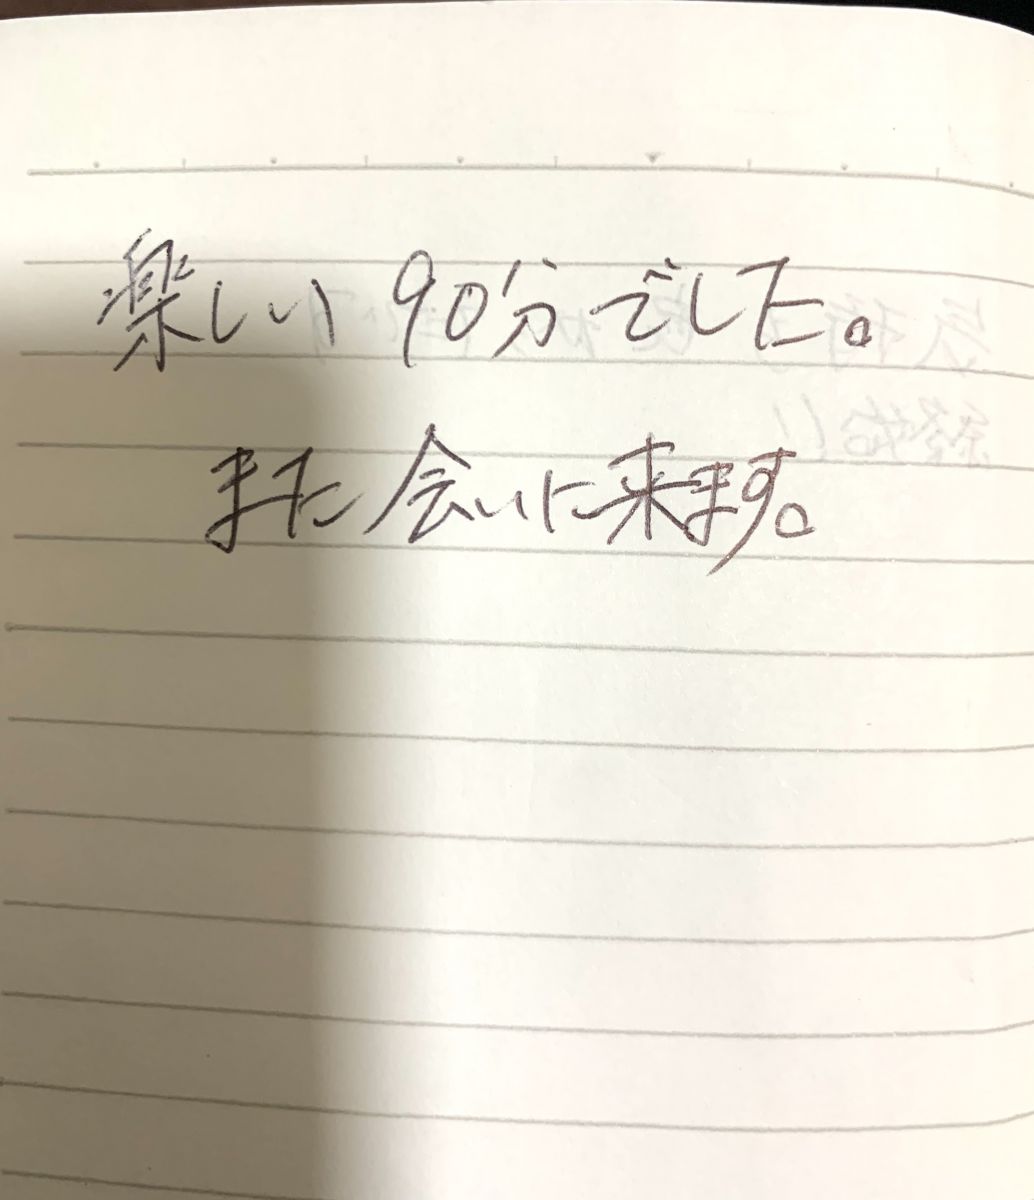 楽しい90分でした。
また会いに来ます。